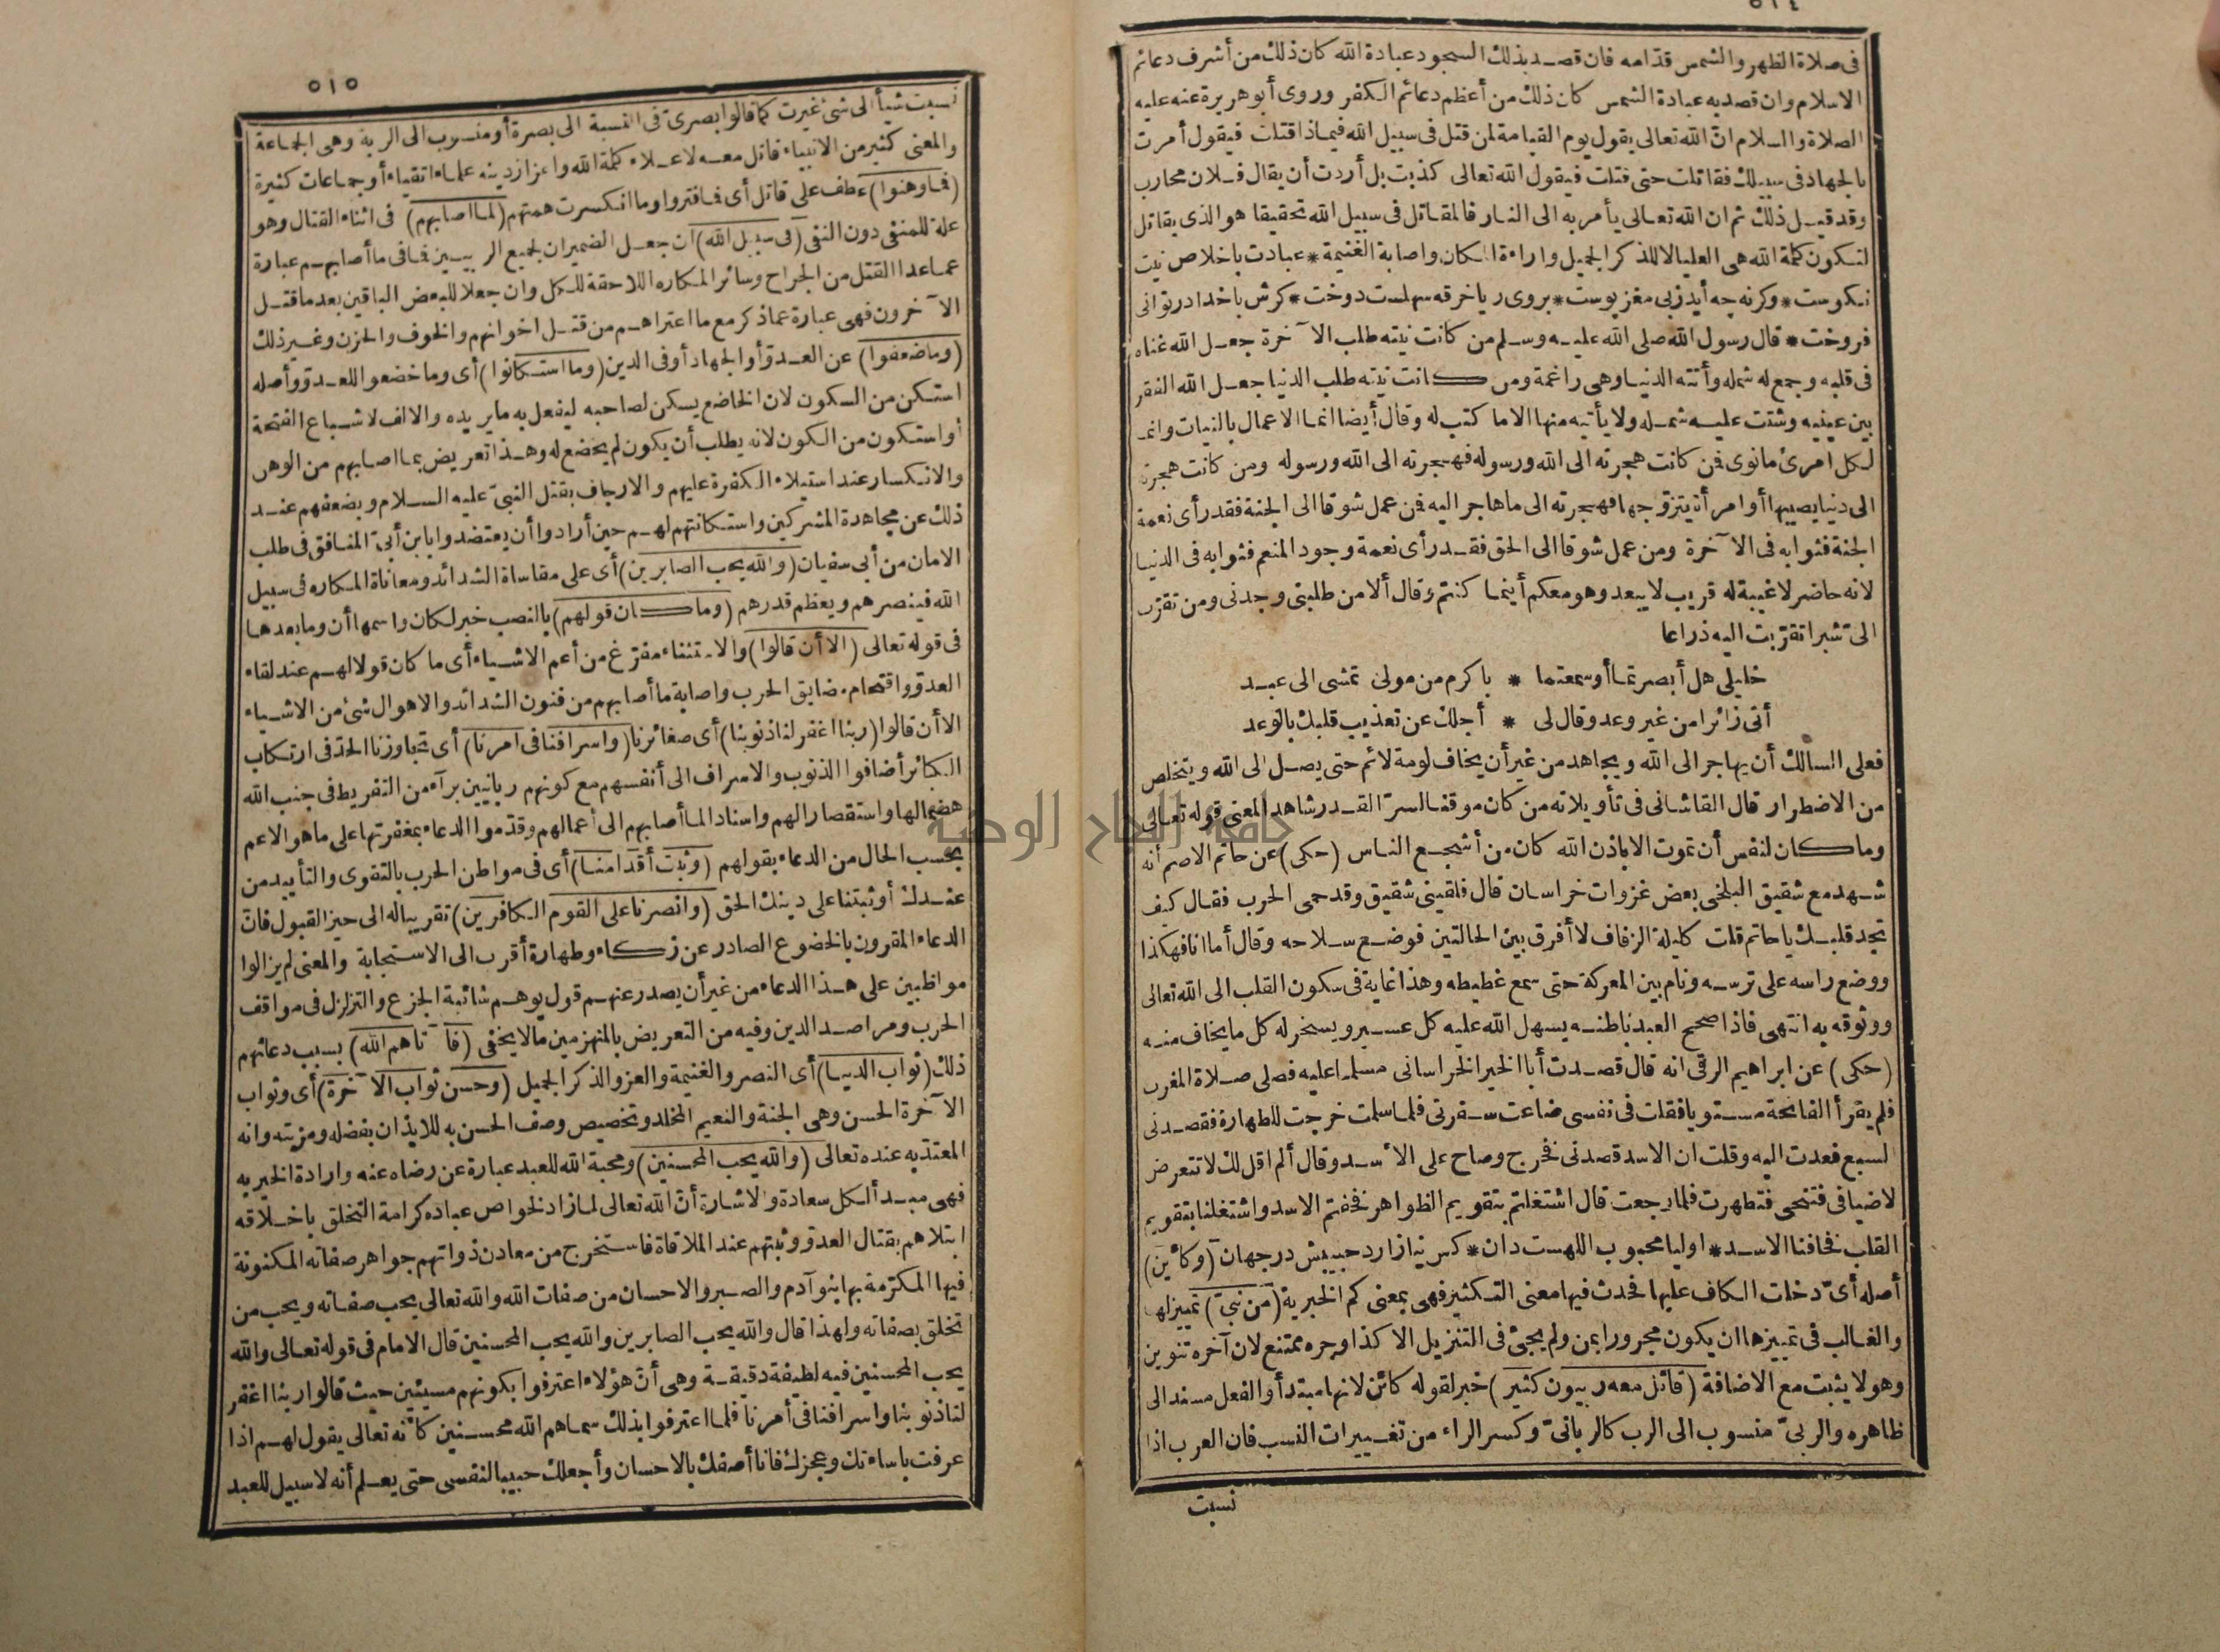 ٥١٤
فى صلاة الظهر والشمس قدّامه فان قصد بذلك السجود عبادة الله كان ذلك من أشرف دعائم
الاسلام وان قصد به عبادة الشمس كان ذلك من أعظم دعائم الكفر وروى أبو هريرة عنه عليه
الصلاة والسلام انّ الله تعالى يقول يوم القيامة لمن قتل فى سبيل الله فيماذا قتلت فيقول أمرت
بالجهاد فى سبيلك فقاتلت حتى قتلت فيقول الله تعالى كذبت بل أردت أن يقال فلان محارب
وقد قيل ذلك ثم ان الله تعالى يأمر به الى النار فالمقاتل فى سبيل الله تحقيقا هو الذى يقاتل
لتكون كلمة الله هى العليا لا للذكر الجميل واراءة المكان واصابة الغنيمة * عبادت باخلاص نيت
نكوست * وكرنه چه آيد زبى مغز پوست * بروى ريا خرقه سهلست دوخت * كرش با خدا در توانى
فروخت * قال رسول الله صلى الله عليه وسلم من كانت نيته طلب الآخرة جعل الله غناه
فى قلبه وجمع له شمله وأتته الدنيا وهى راغمة ومن كانت نيته طلب الدنيا جعل الله الفقر
بين عينيه وشتت عليه شمله ولا يأتيه منها الا ما كتب له وقال أيضا انما الاعمال بالنيات وانما
لكل امرئ مانوى فمن كانت هجرته الى الله ورسوله فهجرته الى الله ورسوله ومن كانت هجرته
الى دنيا يصيبها أو امرأة يتزوّجها فهجرته الى ما هاجر اليه فمن عمل شوقا الى الجنة فقد رأى نعمة
الجنة فثوابه فى الآخرة ومن عمل شوقا الى الحق فقد رأى نعمة وجود المنعم فثوابه فى الدنيا
لانه حاضر لا غيبة له قريب لا يبعد وهو معكم أينما كنتم وقال ألا من طلبنى وجدنى ومن تقرّب
الىّ شبرا تقرّبت اليه ذراعا
خليلى هل أبصرتما أو سمعتما * باكرم من مولى تمشى الى عبد
أتى زائرا من غير وعد وقال لى * أجلك عن تعذيب قلبك بالوعد
فعلى السالك أن يهاجر الى الله ويجاهد من غير أن يخاف لومة لائم حتى يصل الى الله ويتخلص
من الاضطرار قال القاشانى فى تأويلاته من كان موقنا لسرّ القدر شاهد المعنى قوله تعالى
وما كان لنفس أن تموت الا باذن الله كان من أشجع الناس (حكى) عن حاتم الاصم أنه
شهد مع شقيق البلخى بعض غزوات خراسان قال فلقينى شقيق وقد حمى الحرب فقال كيف
تجد قلبك يا حاتم قلت كليلة الزفاف لا أفرق بين الحالتين فوضع سلاحه وقال أما انا فهكذا
ووضع راسه على ترسه ونام بين المعركة حتى سمع غطيطه وهذا غاية فى سكون القلب الى الله تعالى
ووثوقه به انتهى فاذا صحح العبد باطنه يسهل الله عليه كل عسير ويسخر له كل ما يخاف منه
(حكى) عن ابراهيم الرقى انه قال قصدت أبا الخير الخراسانى مسلما عليه فصلى صلاة المغرب
فلم يقرأ الفاتحة مستويا فقلت فى نفسى ضاعت سفرتى فلما سلمت خرجت للطهارة فقصدنى
السبع فعدت اليه وقلت ان الاسد قصدنى فخرج وصاح على الاسد وقال ألم اقل لك لا تتعرض
لاضيافى فتنحى فتطهرت فلما رجعت قال اشتغلتم بتقويم الظواهر فخفتم الاسد واشتغلنا بتقويم
القلب فخافنا الاسد * اوليا محبوب اللهست دان * كس نيازارد حبيبش در جهان (وكأين)
أصله أىّ دخلت الكاف عليها فحدث فيها معنى التكثير فهى بمعنى كم الخبرية (من نبىّ) تمييز لها
والغالب فى تمييزها ان يكون مجرورا بمن ولم يجئ فى التنزيل الا كذا وجره ممتنع لان آخره تنوين
وهو لا يثبت مع الاضافة (قاتل معه ربيون كثير) خبر لقوله كائن لانها مبتدأ والفعل مسند الى
ظاهره والربىّ منسوب الى الرب كالربانىّ وكسر الراء من تغييرات النسب فان العرب اذا
نسبت
٥١٥
نسبت شيأ الى شئ غيرت كما قالوا بصرى فى النسبة الى بصرة أو منسوب الى الربة وهى الجماعة
والمعنى كثير من الانبياء قاتل معه لاعلاء كلمة الله واعزاز دينه علماء اتقياء أو جماعات كثيرة
(فما وهنوا) عطف على قاتل أى فما فتروا وما انكسرت همتهم (لما اصابهم) فى اثناء القتال وهو
علة للمنفى دون النفى (فى سبيل الله) ان جعل الضميران لجميع الربيين فما فى ما أصابهم عبارة
عما عدا القتل من الجراح وسائر المكاره اللاحقة للكل وان جعلا للبعض الباقين بعد ما قتل
الآخرون فهى عبارة عما ذكر مع ما اعتراهم من قتل اخوانهم والخوف والحزن وغير ذلك
(وما ضعفوا) عن العدوّ أو الجهاد أو فى الدين (وما استكانوا) أى وما خضعوا للعدوّ وأصله
استكن من السكون لان الخاضع يسكن لصاحبه ليفعل به ما يريده والالف لاشباع الفتحة
أو استكون من الكون لانه يطلب أن يكون لم يخضع له وهذا تعريض بما اصابهم من الوهن
والانكسار عند استيلاء الكفرة عليهم والارجاف بقتل النبىّ عليه السلام وبضعفهم عند
ذلك عن مجاهدة المشركين واستكانتهم لهم حين أرادوا أن يعتضدوا بابن أبىّ المنافق فى طلب
الامان من أبى سفيان (والله يحب الصابرين) أى على مقاساة الشدائد ومعاناة المكاره فى سبيل
الله فينصرهم ويعظم قدرهم (وما كان قولهم) بالنصب خبر لكان واسمها أن وما بعدها
فى قوله تعالى (الا أن قالوا) والاستثناء مفرّغ من أعم الاشياء أى ما كان قولا لهم عند لقاء
العدوّ واقتحام مضايق الحرب واصابة ما أصابهم من فنون الشدائد والاهوال شئ من الاشياء
الا أن قالوا (ربنا اغفر لنا ذنوبنا) أى صغائرنا (واسرافنا فى امرنا) أى تجاوزنا الحدّ فى ارتكاب
الكبائر أضافوا الذنوب والاسراف الى أنفسهم مع كونهم ربانيين برآء من التفريط فى جنب الله
هضما لها واستقصارا لهم واسنادا لما أصابهم الى أعمالهم وقدّموا الدعاء بمغفرتها على ما هو الاهم
بحسب الحال من الدعاء بقولهم (وثبت أقدامنا) أى فى مواطن الحرب بالتقوى والتأييد من
عندك أو ثبتنا على دينك الحق (وانصرنا على القوم الكافرين) تقريبا له الى حيز القبول فانّ
الدعاء المقرون بالخضوع الصادر عن زكاء وطهارة أقرب الى الاستجابة والمعنى لم يزالوا
مواظبين على هذا الدعاء من غير أن يصدر عنهم قول يوهم شائبة الجزع والتزلزل فى مواقف
الحرب ومراصد الدين وفيه من التعريض بالمنهزمين ما لا يخفى (فآتاهم الله) بسبب دعائهم
ذلك (ثواب الدنيا) أى النصر والغنيمة والعز والذكر الجميل (وحسن ثواب الآخرة) أى وثواب
الآخرة الحسن وهى الجنة والنعيم المخلد وتخصيص وصف الحسن به للايذان بفضله ومزيته وانه
المعتدّ به عنده تعالى (والله يحب المحسنين) ومحبة الله للعبد عبارة عن رضاه عنه وارادة الخير به
فهى مبدأ لكل سعادة والاشارة أنّ الله تعالى لما زاد لخواص عباده كرامة التخلق باخلاقه
ابتلاهم بقتال العدوّ وثبتهم عند الملاقاة فاستخرج من معادن ذواتهم جواهر صفاته المكنونة
فيها المكرّمة بها بنو آدم والصبر والاحسان من صفات الله والله تعالى يحب صفاته ويحب من
تخلق بصفاته ولهذا قال والله يحب الصابرين والله يحب المحسنين قال الامام فى قوله تعالى والله
يحب المحسنين فيه لطيفة دقيقة وهى أنّ هؤلاء اعترفوا بكونهم مسيئين حيث قالوا ربنا اغفر
لنا ذنوبنا واسرافنا فى أمرنا فلما اعترفوا بذلك سماهم الله محسنين كأنه تعالى يقول لهم اذا
عرفت باساءتك وعجزك فانا أصفك بالاحسان وأجعلك حبيبا لنفسى حتى يعلم أنه لا سبيل للعبد
جامعة النجاح الوطنية